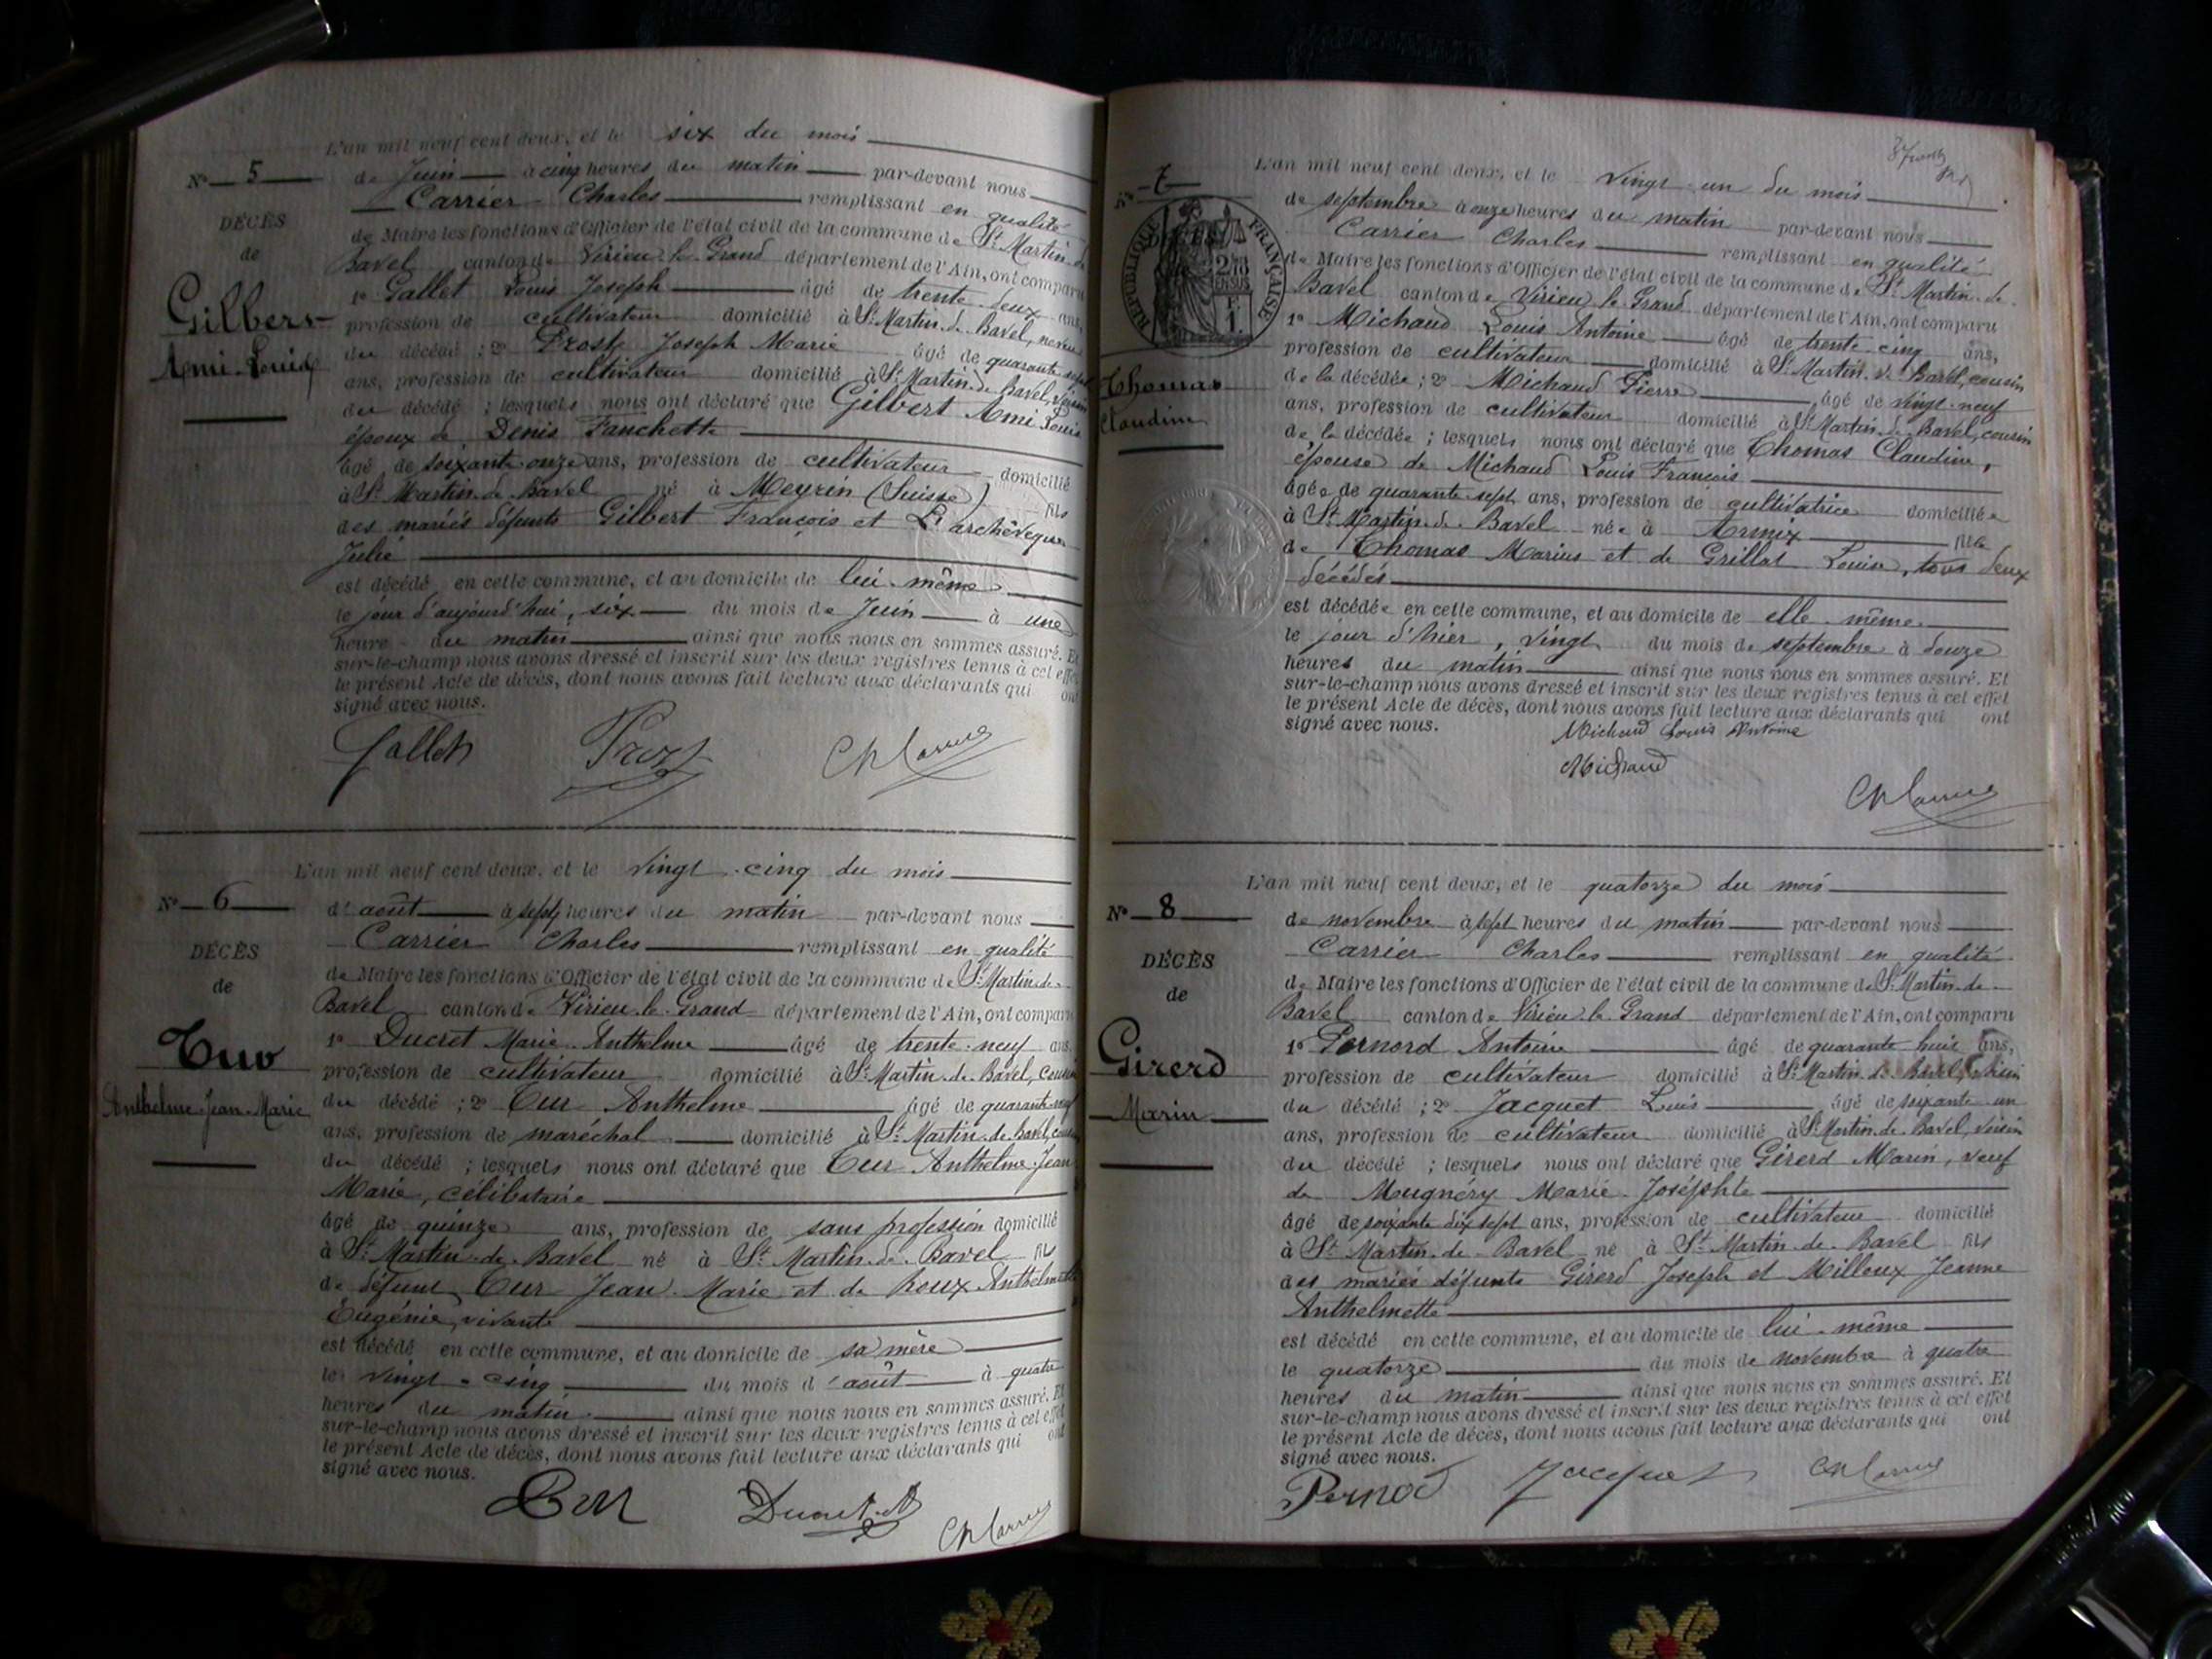 L'an mil neuf cent deux, et le six du mois
N° 5
de Juin à cinq heures du matin par-devant nous
Carrier Charles remplissant en qualité
DÉCÈS
de Maire les fonctions d'Officier de l'état civil de la commune de St Martin de
de
Bavel canton de Virieu-le-Grand département de l'Ain, ont comparu
Gilbert
Ami-Louis
1° Gallet Louis Joseph âgé de trente-deux ans,
profession de cultivateur domicilié à St Martin-de-Bavel, neveu
du décédé ; 2° Prost Joseph Marie âgé de quarante sept
ans, profession de cultivateur domicilié à St Martin-de-Bavel, voisin
du décédé ; lesquels nous ont déclaré que Gilbert Ami Louis
époux de Denis Fanchette
âgé de soixante onze ans, profession de cultivateur domicilié
à St Martin-de-Bavel né à Meyrin (Suisse) fils
des mariés défunts Gilbert François et Larchêveque
Julie
est décédé en cette commune, et au domicile de lui-même
le jour d'aujourd'hui, six du mois de Juin à une
heure du matin ainsi que nous nous en sommes assuré. Et
sur-le-champ nous avons dressé et inscrit sur les deux registres tenus à cet effet
le présent Acte de décès, dont nous avons fait lecture aux déclarants qui ont
signé avec nous.
Gallet Prost Ch Carrier
L'an mil neuf cent deux, et le vingt-cinq du mois
N° 6
d'août à sept heures du matin par-devant nous
Carrier Charles remplissant en qualité
DÉCÈS
de Maire les fonctions d'Officier de l'état civil de la commune de St Martin-de-
de
Bavel canton de Virieu-le-Grand département de l'Ain, ont comparu
Anthelme-Jean-Marie
1° Ducret Marie-Anthelme âgé de trente-neuf ans
profession de cultivateur domicilié à St Martin-de-Bavel, cousin
du décédé ; 2° Cur Anthelme âgé de quarante-neuf
ans, profession de maréchal domicilié à St Martin-de-Bavel, cousin
du décédé ; lesquels nous ont déclaré que Cur Anthelme-Jean
Marie, célibataire
âgé de quinze ans, profession de sans profession domicilié
à St Martin-de-Bavel né à St Martin-de-Bavel fils
de défunt Cur Jean-Marie et de Roux Anthelmette
Eugénie, vivante
est décédé en cette commune, et au domicile de sa mère
le vingt-cinq du mois d'août à quatre
heures du matin ainsi que nous nous en sommes assuré. Et
sur-le-champ nous avons dressé et inscrit sur les deux registres tenus à cet effet
le présent Acte de décès, dont nous avons fait lecture aux déclarants qui ont
signé avec nous.
Cur Ducret A Ch Carrier
L'an mil neuf cent deux, et le vingt-un du mois
N° 7
de septembre à onze heures du matin par-devant nous
Carrier Charles remplissant en qualité
DÉCÈS
RÉPUBLIQUE FRANÇAISE
de Maire les fonctions d'Officier de l'état civil de la commune de St Martin-de-
Bavel canton de Virieu-le-Grand département de l'Ain, ont comparu
1° Michaud Louis Antoine âgé de trente-cinq ans,
profession de cultivateur domicilié à St Martin-de-Bavel, cousin
Thomas
Claudine
de la décédée ; 2° Michaud Pierre âgé de vingt-neuf
ans, profession de cultivateur domicilié à St Martin-de-Bavel, cousin
de la décédée ; lesquels nous ont déclaré que Thomas Claudine,
épouse de Michaud Louis François
âgée de quarante-sept ans, profession de cultivatrice domiciliée
à St Martin-de-Bavel née à Armix fille
de Thomas Marius et de Grillat Louise, tous deux
décédés
est décédée en cette commune, et au domicile de elle-même
le jour d'hier, vingt du mois de septembre à douze
heures du matin ainsi que nous nous en sommes assuré. Et
sur-le-champ nous avons dressé et inscrit sur les deux registres tenus à cet effet
le présent Acte de décès, dont nous avons fait lecture aux déclarants qui ont
signé avec nous.
Michaud Louis Antoine
Michaud
Ch Carrier
L'an mil neuf cent deux, et le quatorze du mois
N° 8
de novembre à sept heures du matin par-devant nous
Carrier Charles remplissant en qualité
DÉCÈS
de Maire les fonctions d'Officier de l'état civil de la commune de St Martin-de-
de
Bavel canton de Virieu-le-Grand département de l'Ain, ont comparu
Girerd
Marin
1° Pernod Antoine âgé de quarante huit ans,
profession de cultivateur domicilié à St Martin-de-Bavel, voisin
du décédé ; 2° Jacquet Louis âgé de soixante un
ans, profession de cultivateur domicilié à St Martin-de-Bavel, voisin
du décédé ; lesquels nous ont déclaré que Girerd Marin, veuf
de Mugnéry Marie-Joséphte
âgé de soixante dix sept ans, profession de cultivateur domicilié
à St Martin-de-Bavel né à St Martin-de-Bavel fils
des mariés défunts Girerd Joseph et Milloux Jeanne
Anthelmette
est décédé en cette commune, et au domicile de lui-même
le quatorze du mois de novembre à quatre
heures du matin ainsi que nous nous en sommes assuré. Et
sur-le-champ nous avons dressé et inscrit sur les deux registres tenus à cet effet
le présent Acte de décès, dont nous avons fait lecture aux déclarants qui ont
signé avec nous.
Pernod Jacquet Ch Carrier